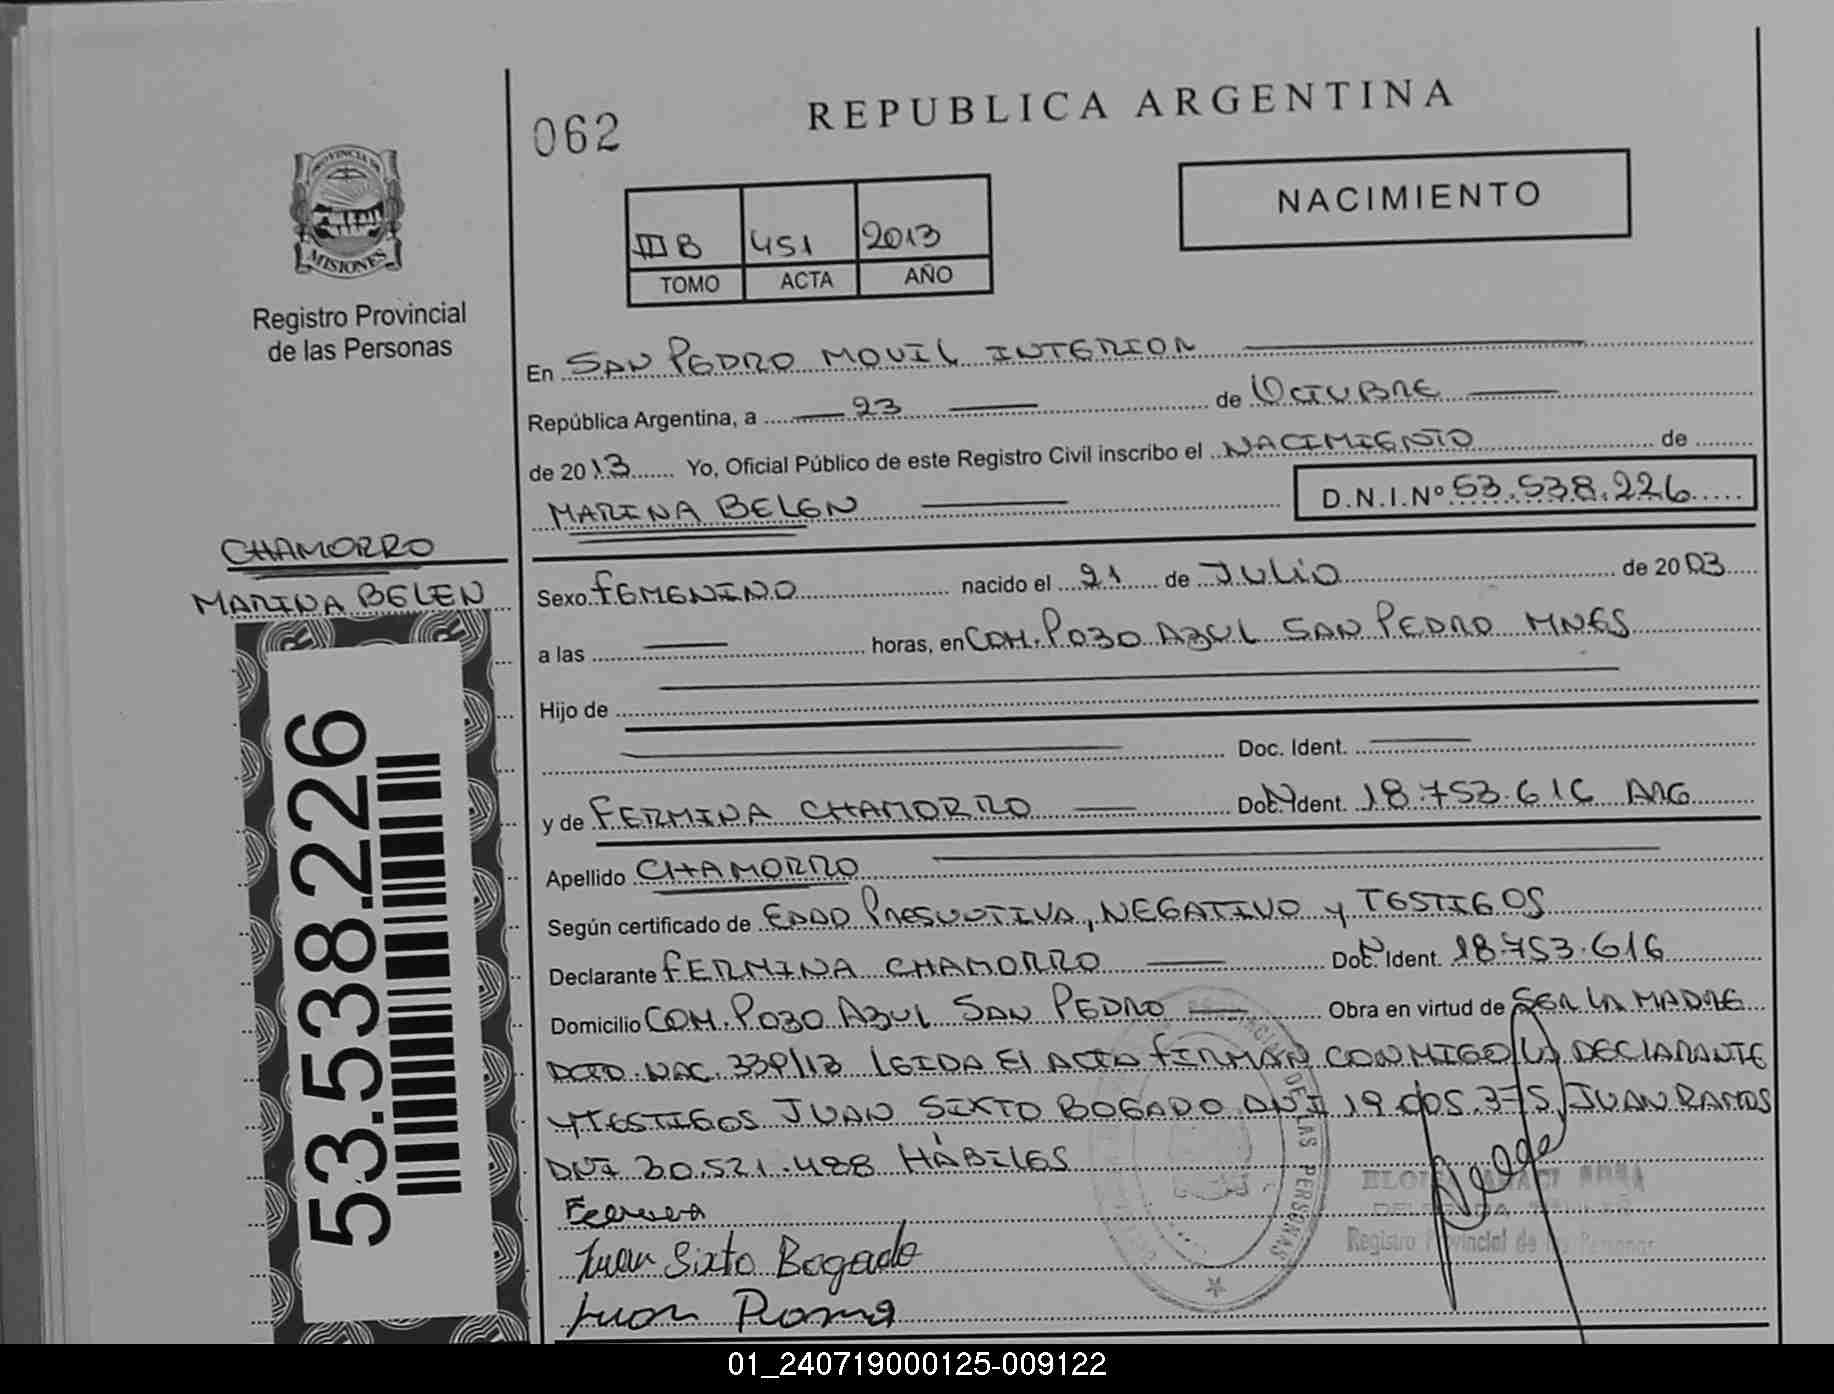 062
REPUBLICA ARGENTINA
NACIMIENTO
PROVINCIA DE
MISIONES
Registro Provincial
de las Personas
III B 451 2013
TOMO ACTA AÑO
En SAN PEDRO MOVIL INTERIOR
República Argentina, a 23 de OCTUBRE
de 2013 Yo, Oficial Público de este Registro Civil inscribo el NACIMIENTO de
MARINA BELEN D.N.I.Nº 53.538.226
CHAMORRO
MARINA BELEN
53.538.226
Sexo FEMENINO nacido el 21 de JULIO de 2003
a las horas, en COM. POZO AZUL SAN PEDRO MNES
Hijo de
Doc. Ident.
y de FERMINA CHAMORRO Doc. Ident. 18.753.616 ARG
Apellido CHAMORRO
Según certificado de EDAD PRESUNTIVA, NEGATIVO y TESTIGOS
Declarante FERMINA CHAMORRO Doc. Ident. 18.753.616
Domicilio COM. POZO AZUL SAN PEDRO Obra en virtud de SER LA MADRE
DCTO. NAC. 339/13 LEIDA El ACTA FIRMAN CONMIGO LA DECLARANTE
Y TESTIGOS JUAN SIXTO BOGADO DNI 19.005.375, JUAN RAMOS
DNI 30.521.488 HÁBILES
Juan Sixto Bogado
Juan
DE LAS PERSONAS
Registro Provincial de las Personas
01_240719000125-009122